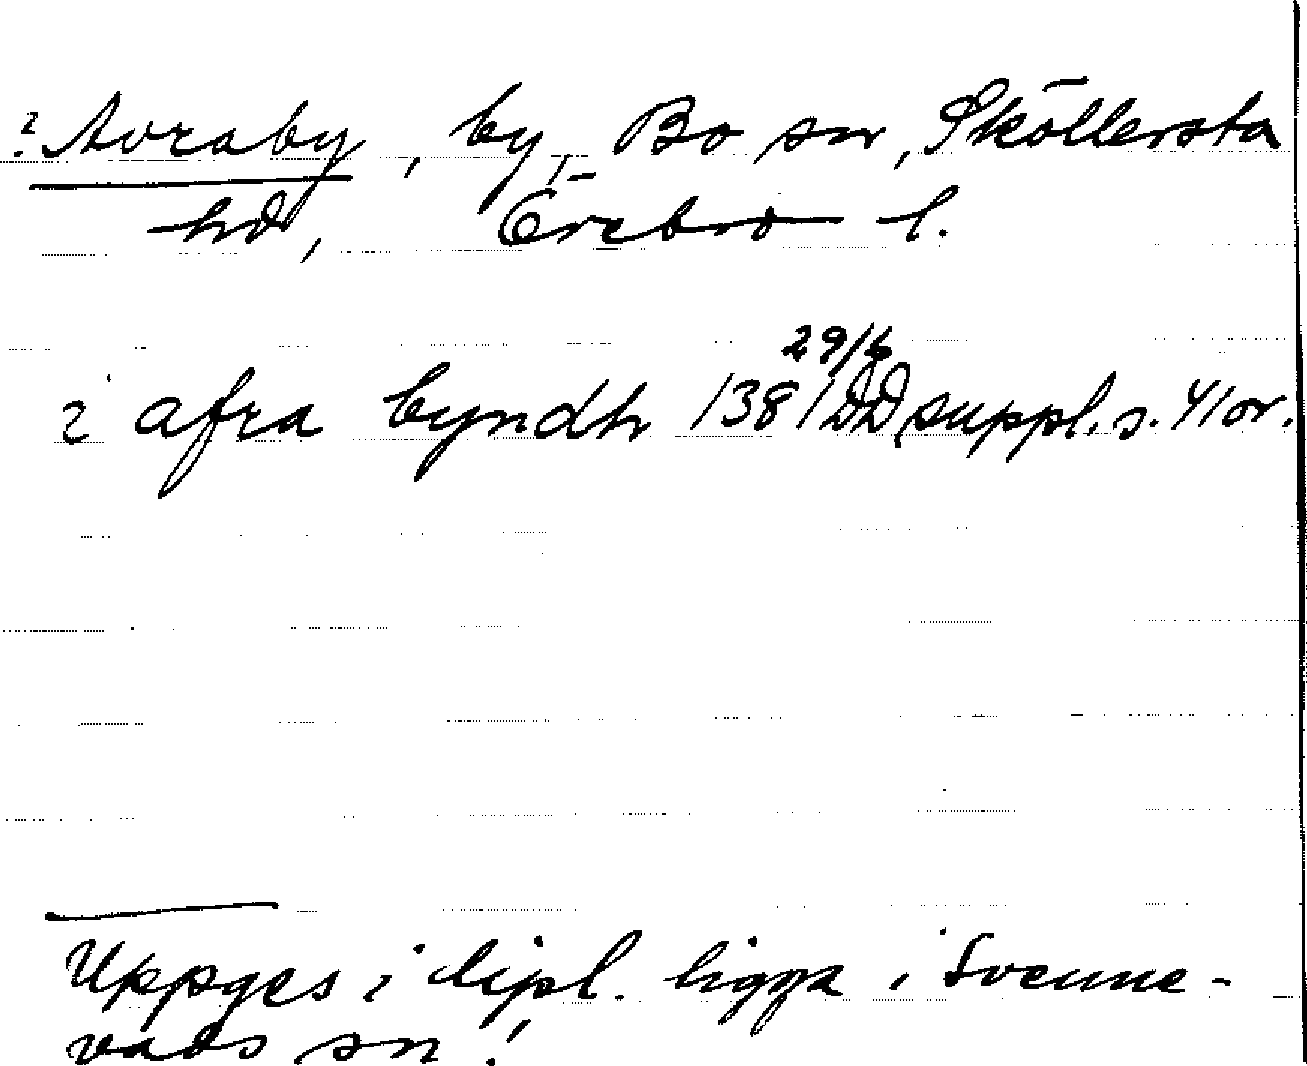 ? Avraby, by, Bo sn, Sköllersta
hd, Örebro l.
29/6
i afra byndh 1381 DD suppl. s. 41 or.
Uppges i dipl. ligga i Svenne-
vads sn!